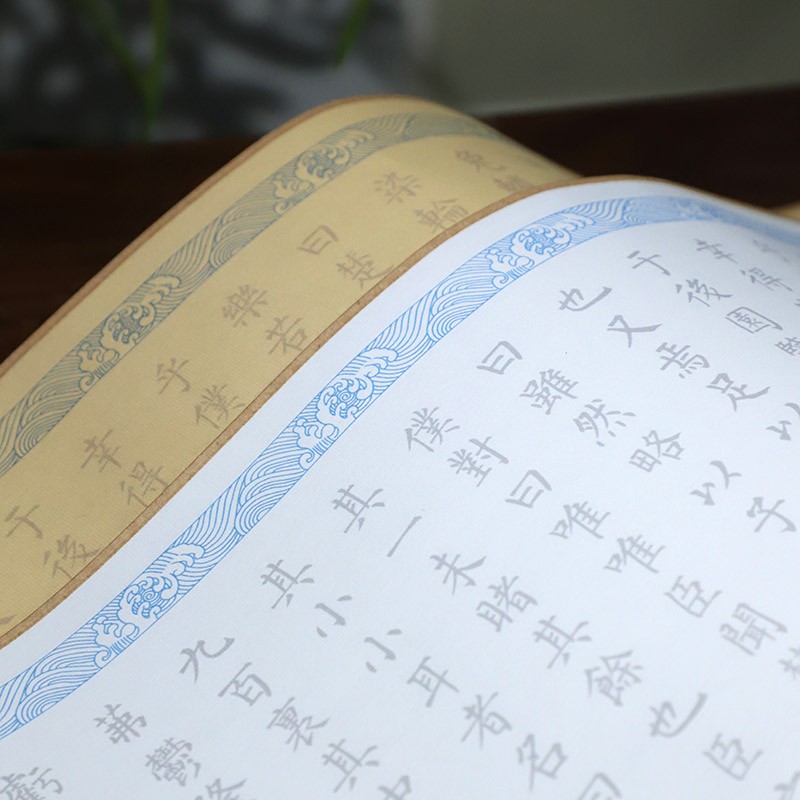 幸得
于後園
也又焉足以
曰雖然略以子
僕對曰唯唯臣聞
其一未睹其餘也臣
其小小耳者名曰
九百裏其中
茀鬱隆
虧
染輪
曰楚
樂若
乎僕
幸得
于後